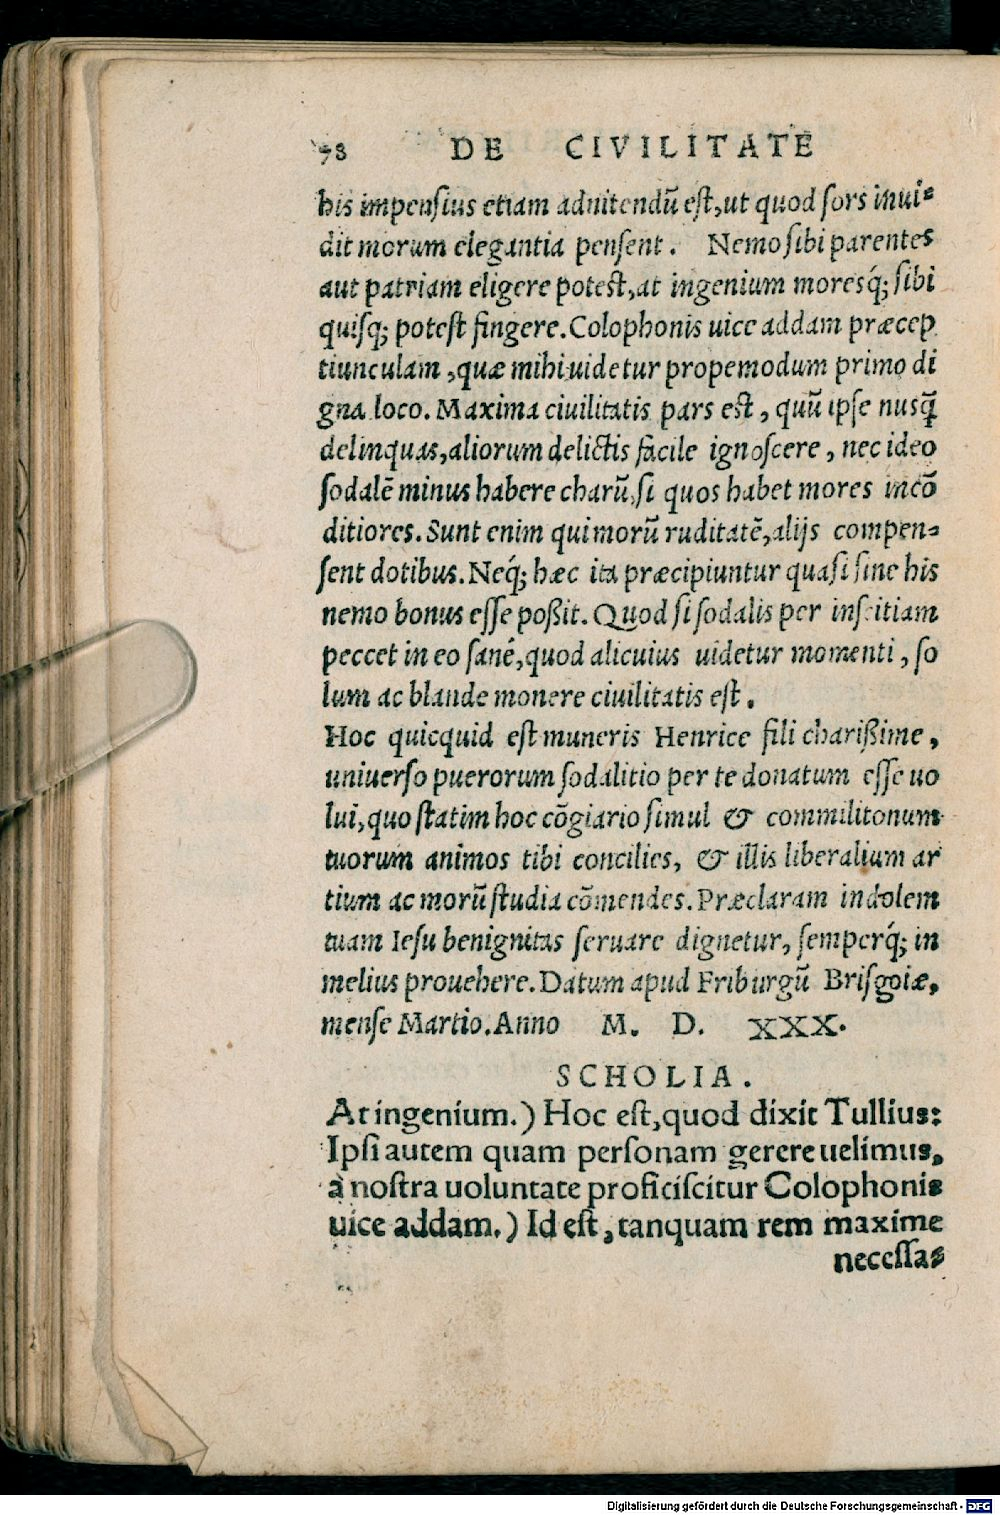 78 DE CIVILITATE
his impensius etiam adnitendũ est, ut quod sors inui⸗
dit morum elegantia pensent. Nemo sibi parentes
aut patriam eligere potest, at ingenium moresq́; sibi
quisq; potest fingere. Colophonis uice addam præcep
tiunculam, quæ mihi uidetur propemodum primo di
gna loco. Maxima ciuilitatis pars est, quũ ipse nusq̃
delinquas, aliorum delictis facile ignoscere, nec ideo
sodalẽ minus habere charũ, si quos habet mores incõ
ditiores. Sunt enim qui morũ ruditatẽ, alijs compen⸗
sent dotibus. Neq́; hæc ita præcipiuntur quasi sine his
nemo bonus esse poßit. Quod si sodalis per inscitiam
peccet in eo sané, quod alicuius uidetur momenti, so
lum ac blande monere ciuilitatis est.
Hoc quicquid est muneris Henrice fili charißime,
uniuerso puerorum sodalitio per te donatum esse uo
lui, quo statim hoc cõgiario simul & commilitonum
tuorum animos tibi concilies, & illis liberalium ar
tium ac morũ studia cõmendes. Præclaram indolem
tuam Iesu benignitas seruare dignetur, semperq́; in
melius prouehere. Datum apud Friburgũ Brisgoiæ,
mense Martio. Anno M. D. XXX.
SCHOLIA.
At ingenium.) Hoc est, quod dixit Tullius:
Ipsi autem quam personam gerere uelimus,
à nostra uoluntate proficiscitur Colophonis
uice addam.) Id est, tanquam rem maxime
necessa⸗
Digitalisierung gefördert durch die Deutsche Forschungsgemeinschaft - DFG